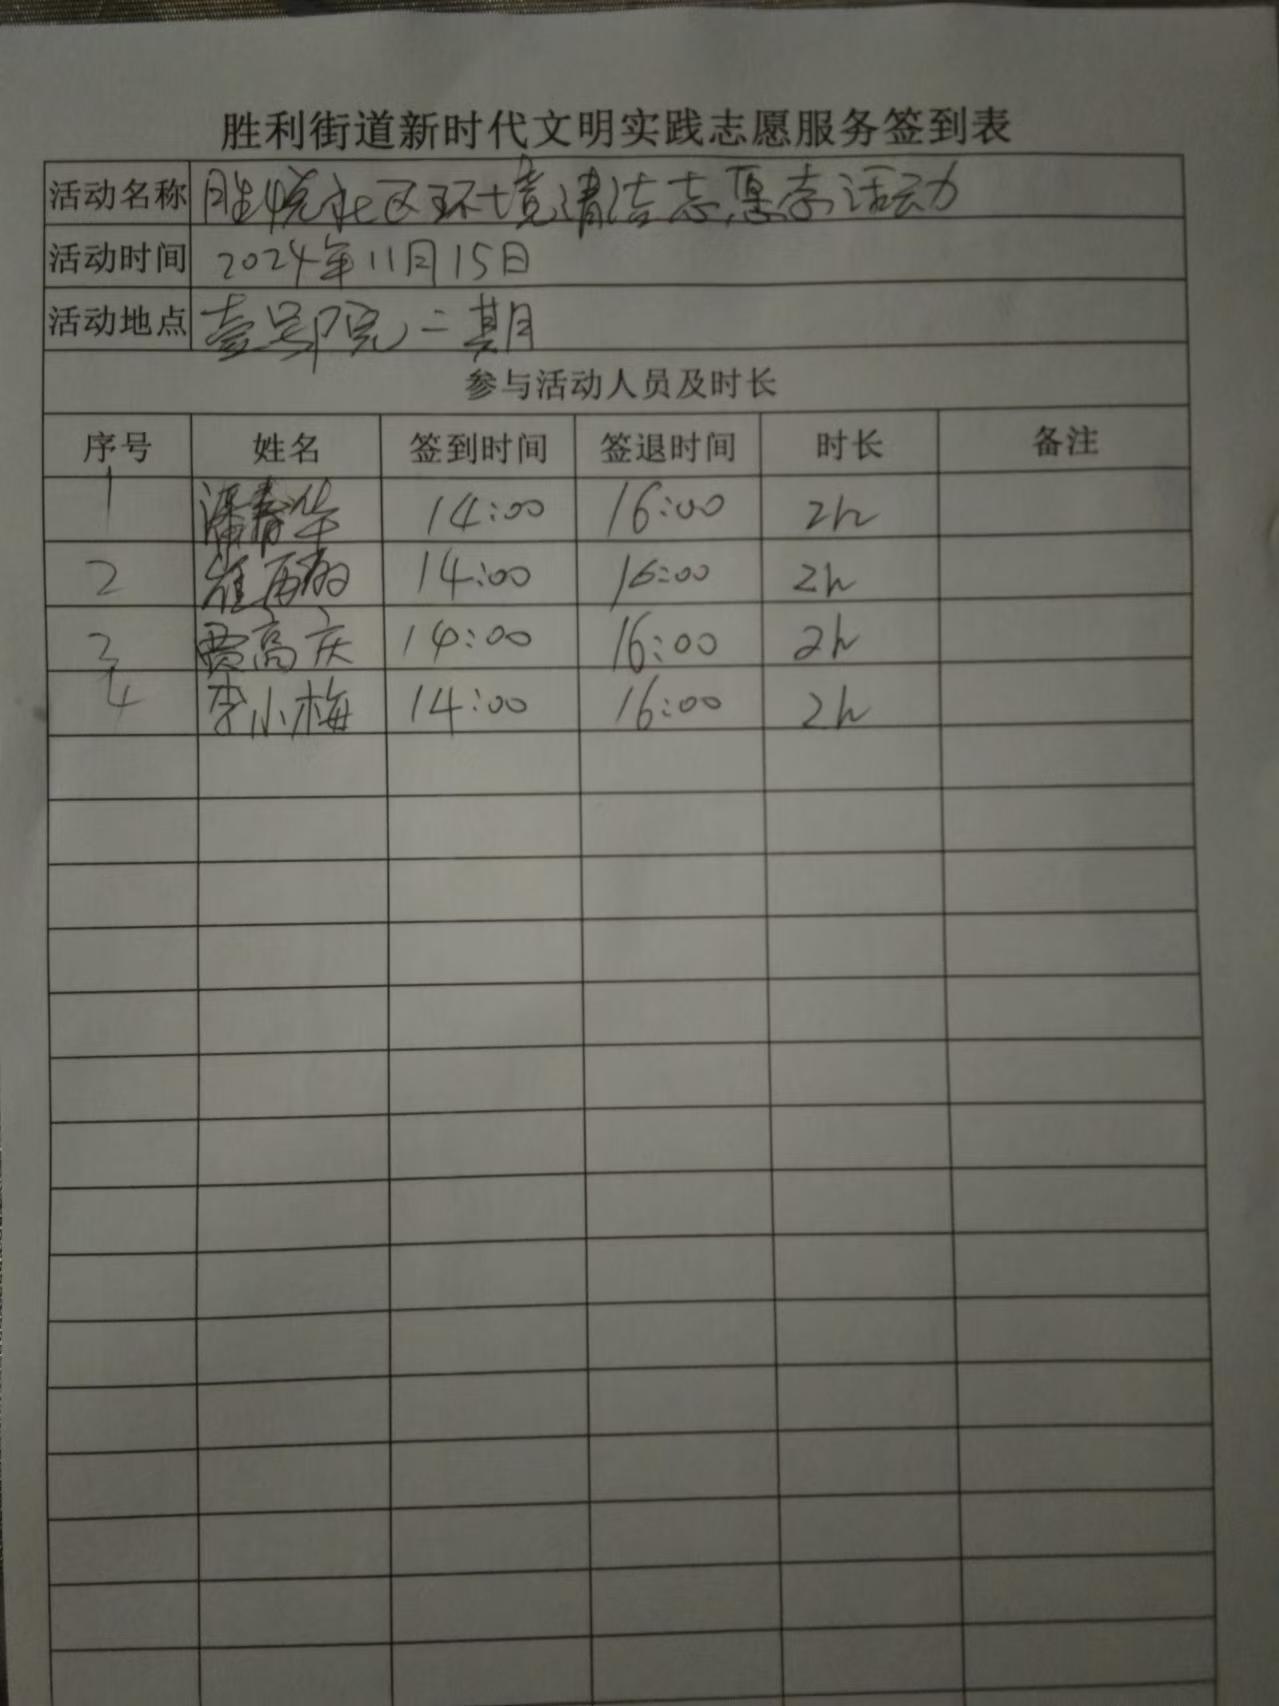 胜利街道新时代文明实践志愿服务签到表
活动名称 胜悦社区环境清洁志愿者活动
活动时间 2024年11月15日
活动地点 壹号院二期
参与活动人员及时长
序号 姓名 签到时间 签退时间 时长 备注
1 潘春华 14:00 16:00 2h
2 崔 14:00 16:00 2h
3 贾高庆 14:00 16:00 2h
4 李小梅 14:00 16:00 2h